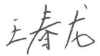 王春龙